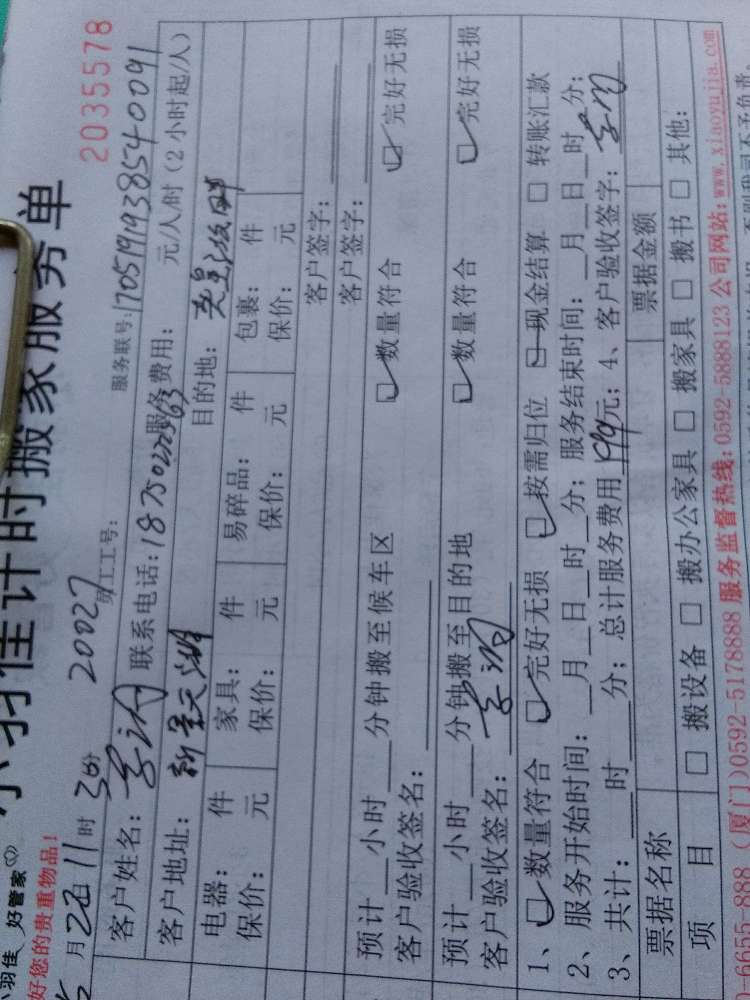 小羽佳 好管家
小羽佳计时搬家服务单
好您的贵重物品!
2035578
月22日11时30分
20027
员工工号:
服务联号:170519193854009​1
客户姓名:
联系电话:18750222563
服务费用: 元/人/时(2小时起/人)
客户地址:新景天湖
目的地:
电器: 件 家具: 件 易碎品: 件 包裹: 件
保价: 元 保价: 元 保价: 元 保价: 元
客户签字:
预计 小时 分钟搬至候车区 客户签字:
客户验收签名: 数量符合 完好无损
预计 小时 分钟搬至目的地
客户验收签名: 数量符合 完好无损
1、数量符合 完好无损 按需归位 现金结算 转账汇款
2、服务开始时间: 月 日 时 分;服务结束时间: 月 日 时 分;
3、共计: 时 分;总计服务费用 199元;4、客户验收签字:
票据名称 票据金额
项 目 搬设备 搬办公家具 搬家具 搬书 其他:
0-6655-888 (厦门)0592-5178888 服务监督热线:0592-5888123 公司网站:www.xiaoyujia.com